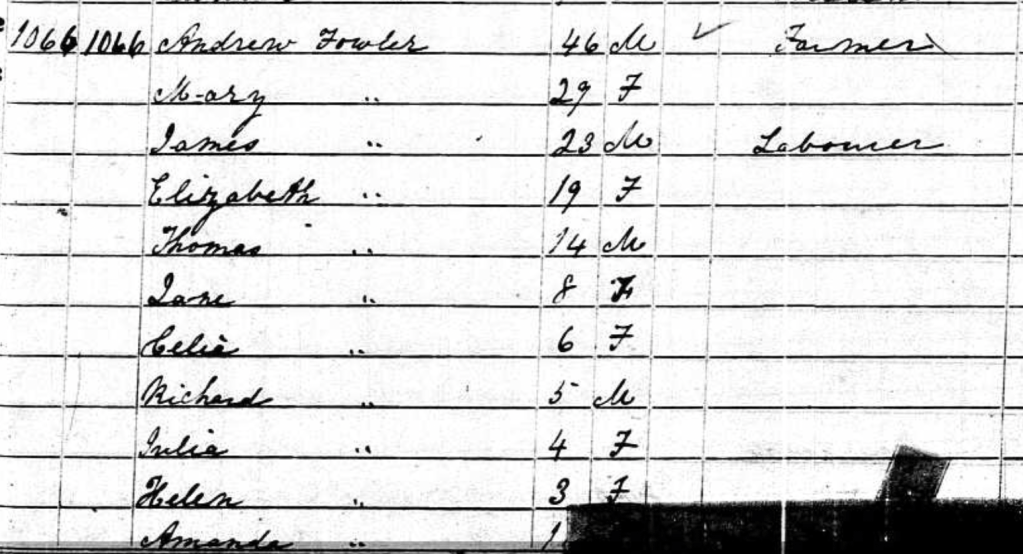 1066 1066 Andrew Fowler 46 M ✓ Farmer
Mary " 29 F
James " 23 M Labourer
Elizabeth " 19 F
Thomas " 14 M
Jane " 8 F
Celia " 6 F
Richard " 5 M
Julia " 4 F
Helen " 3 F
Amanda " 1